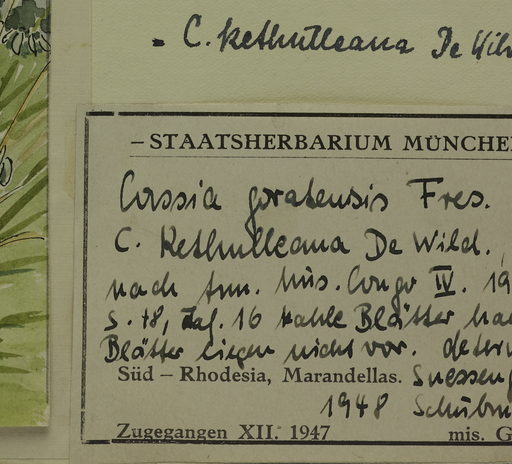 = C. Kethulleana De Wil
– STAATSHERBARIUM MÜNCHE
Cassia goratensis Fres.
C. Kethulleana De Wild.,
nach Ann. Mus. Congo IV. 19
S. 78, Taf. 16 kahle Blätter
Blätter liegen nicht vor. determ
Süd – Rhodesia, Marandellas. Suesseng
1948 Schubm
Zugegangen XII. 1947 mis. G